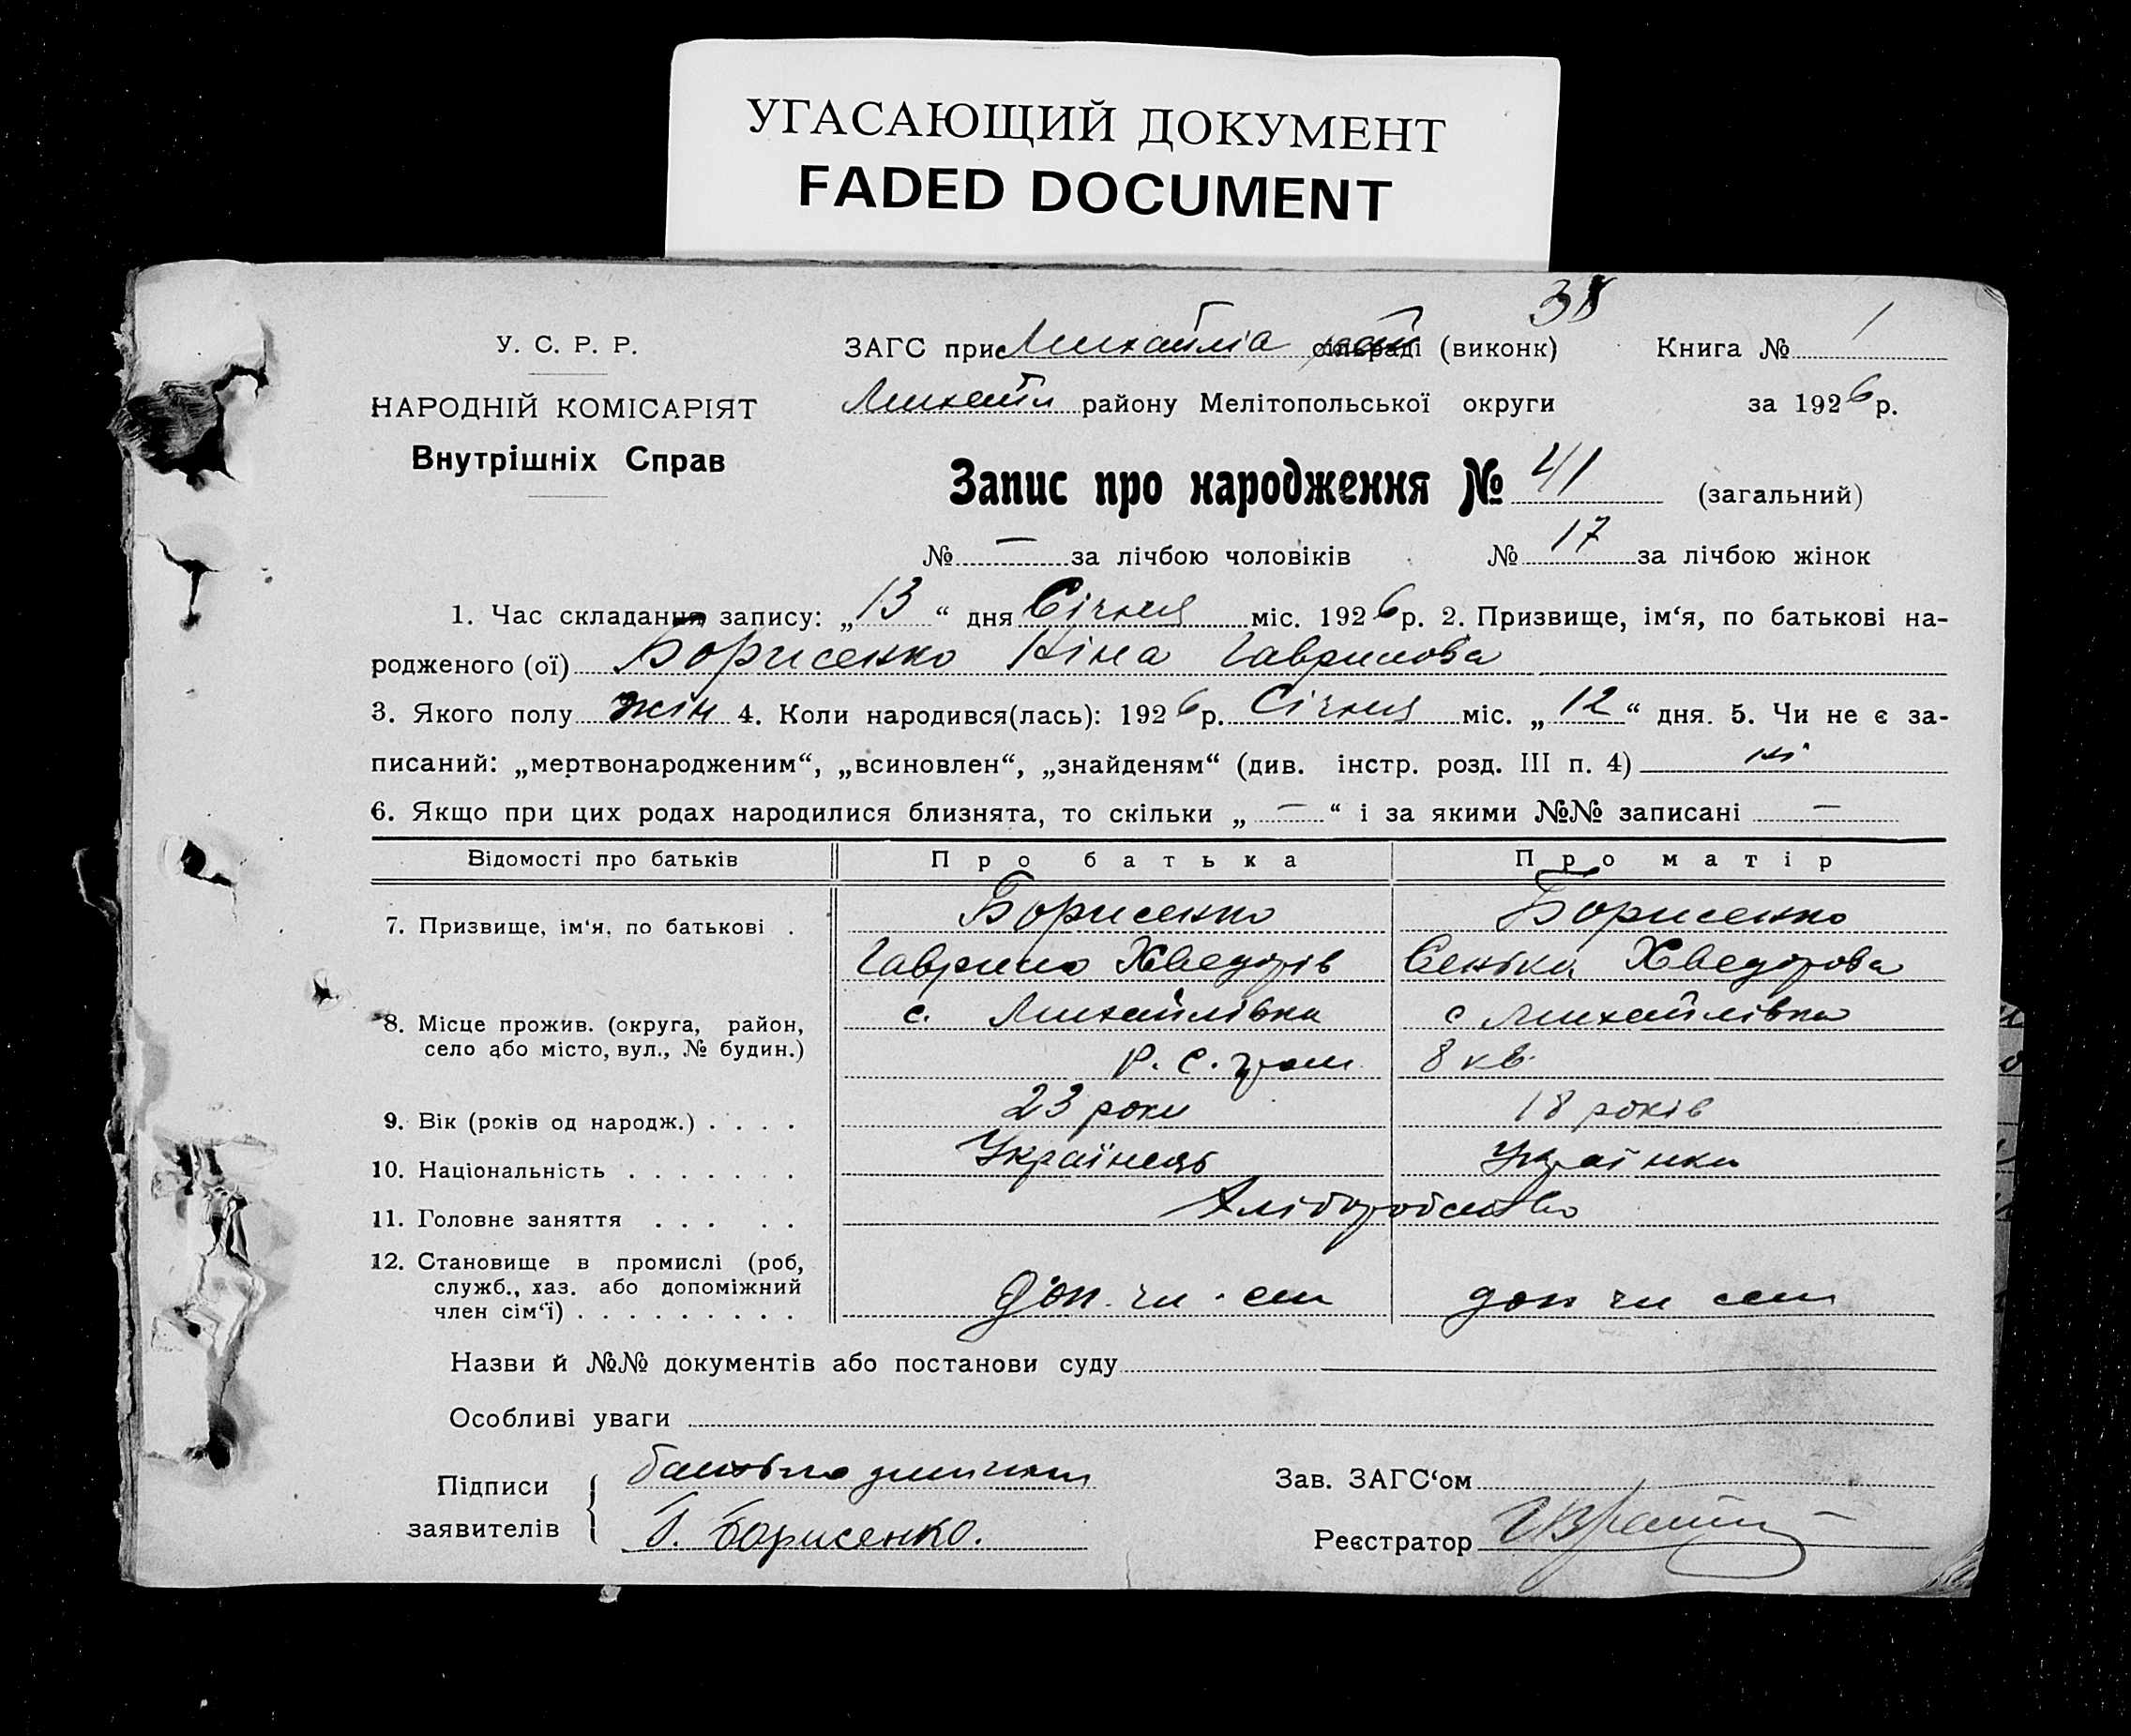 УГАСАЮЩИЙ ДОКУМЕНТ
FADED DOCUMENT
38
У. С. Р. Р.
НАРОДНІЙ КОМІСАРІЯТ
Внутрішніх Справ
ЗАГС при Михайлів (виконк)
Книга № 1
Михайл району Мелітопольської округи
за 1926 р.
Запис про народження № 41 (загальний)
№ — за лічбою чоловіків № 17 за лічбою жінок
1. Час складання запису: „13“ дня Січня міс. 1926 р. 2. Призвище, ім‘я, по батькові на-
родженого (ої) Борисенко Ніна Гаврилова
3. Якого полу жін 4. Коли народився(лась): 1926 р. Січня міс. „12“ дня. 5. Чи не є за-
писаний: „мертвонародженим“, „всиновлен“, „знайденям“ (див. інстр. розд. III п. 4) ні
6. Якщо при цих родах народилися близнята, то скільки „—“ і за якими №№ записані —
Відомості про батьків Про батька Про матір
7. Призвище, ім‘я, по батькові . Борисенко Борисенко
Гаврило Хведорів Хведорова
8. Місце прожив. (округа, район, с. Михайлівка с Михайлівка
село або місто, вул., № будин.) 8 кв.
9. Вік (років од народж.) . . . . 23 роки 18 років
10. Національність . . . . . . . Українець Українка
11. Головне заняття . . . . . Хліборобство
12. Становище в промислі (роб,
служб., хаз. або допоміжний доп. чл. сем доп чл сем
член сім‘ї) . . . . . . . . .
Назви й №№ документів або постанови суду
Особливі уваги
Підписи
заявителів
Г. Борисенко.
Зав. ЗАГС‘ом
Реєстратор